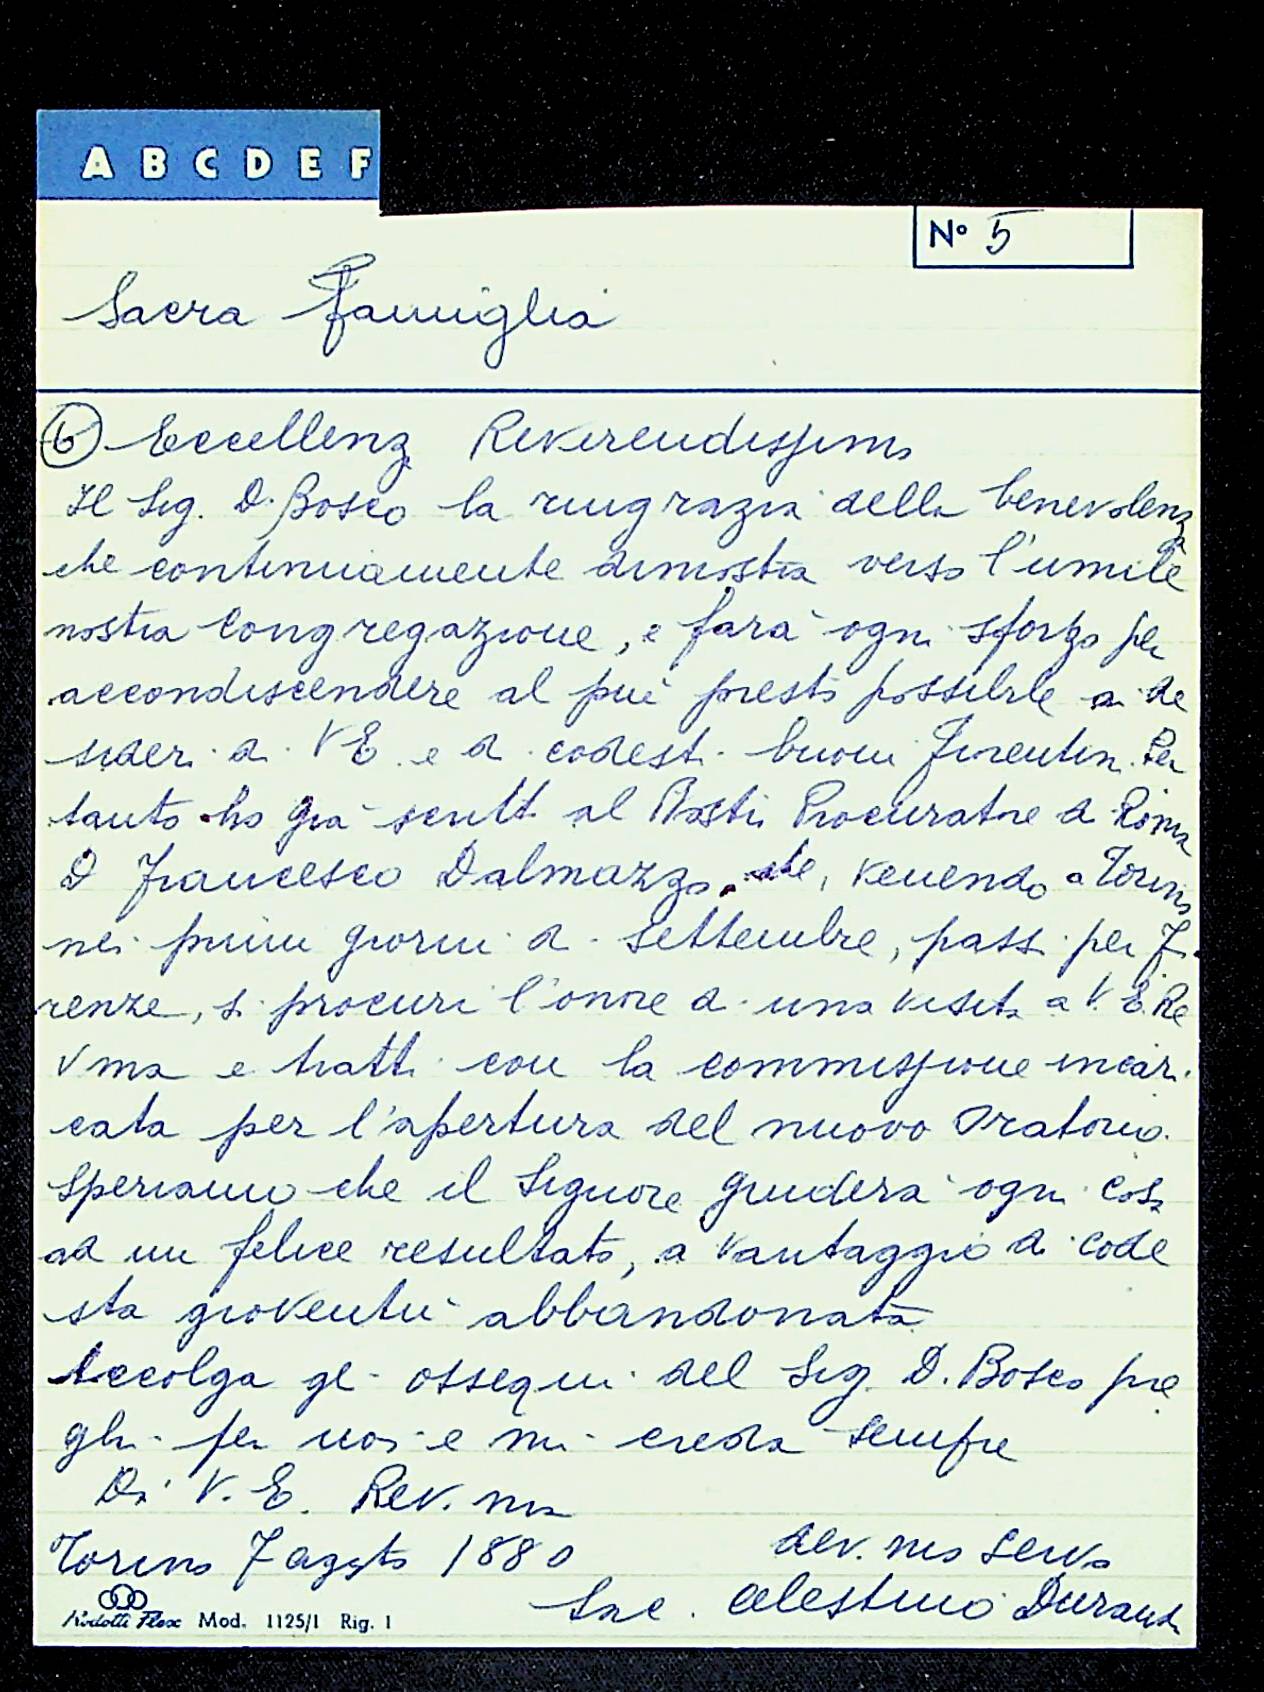 A B C D E F
N° 5
Sacra Famiglia
6 Eccellenza Reverendissima
Il Sig. D. Bosco la ringrazia della benevolenza
che continuamente dimostra verso l'umile
nostra Congregazione, e farà ogni sforzo per
accondiscendere al più presto possibile ai de
sideri di V E. e di codesti buoni Fiorentini. Per
tanto ho già scritto al Nostro Procuratore di Roma
D Francesco Dalmazzo. che, venendo a Torino
nei primi giorni di settembre, passi per Fi-
renze, si procuri l'onore di una visita a V. E. Re
v ma e tratti con la commissione incari
cata per l'apertura del nuovo Oratorio.
Speriamo che il Signore guiderà ogni cosa
ad un felice resultato, a vantaggio di code
sta gioventù abbandonata
Accolga gli ossequi del Sig. D. Bosco pre
ghi per noi e mi creda sempre
Di V. E. Rev. ma
Torino 7 agosto 1880
dev. mo servo
Sac. Celestino Durando
Mod. 1125/1 Rig. 1